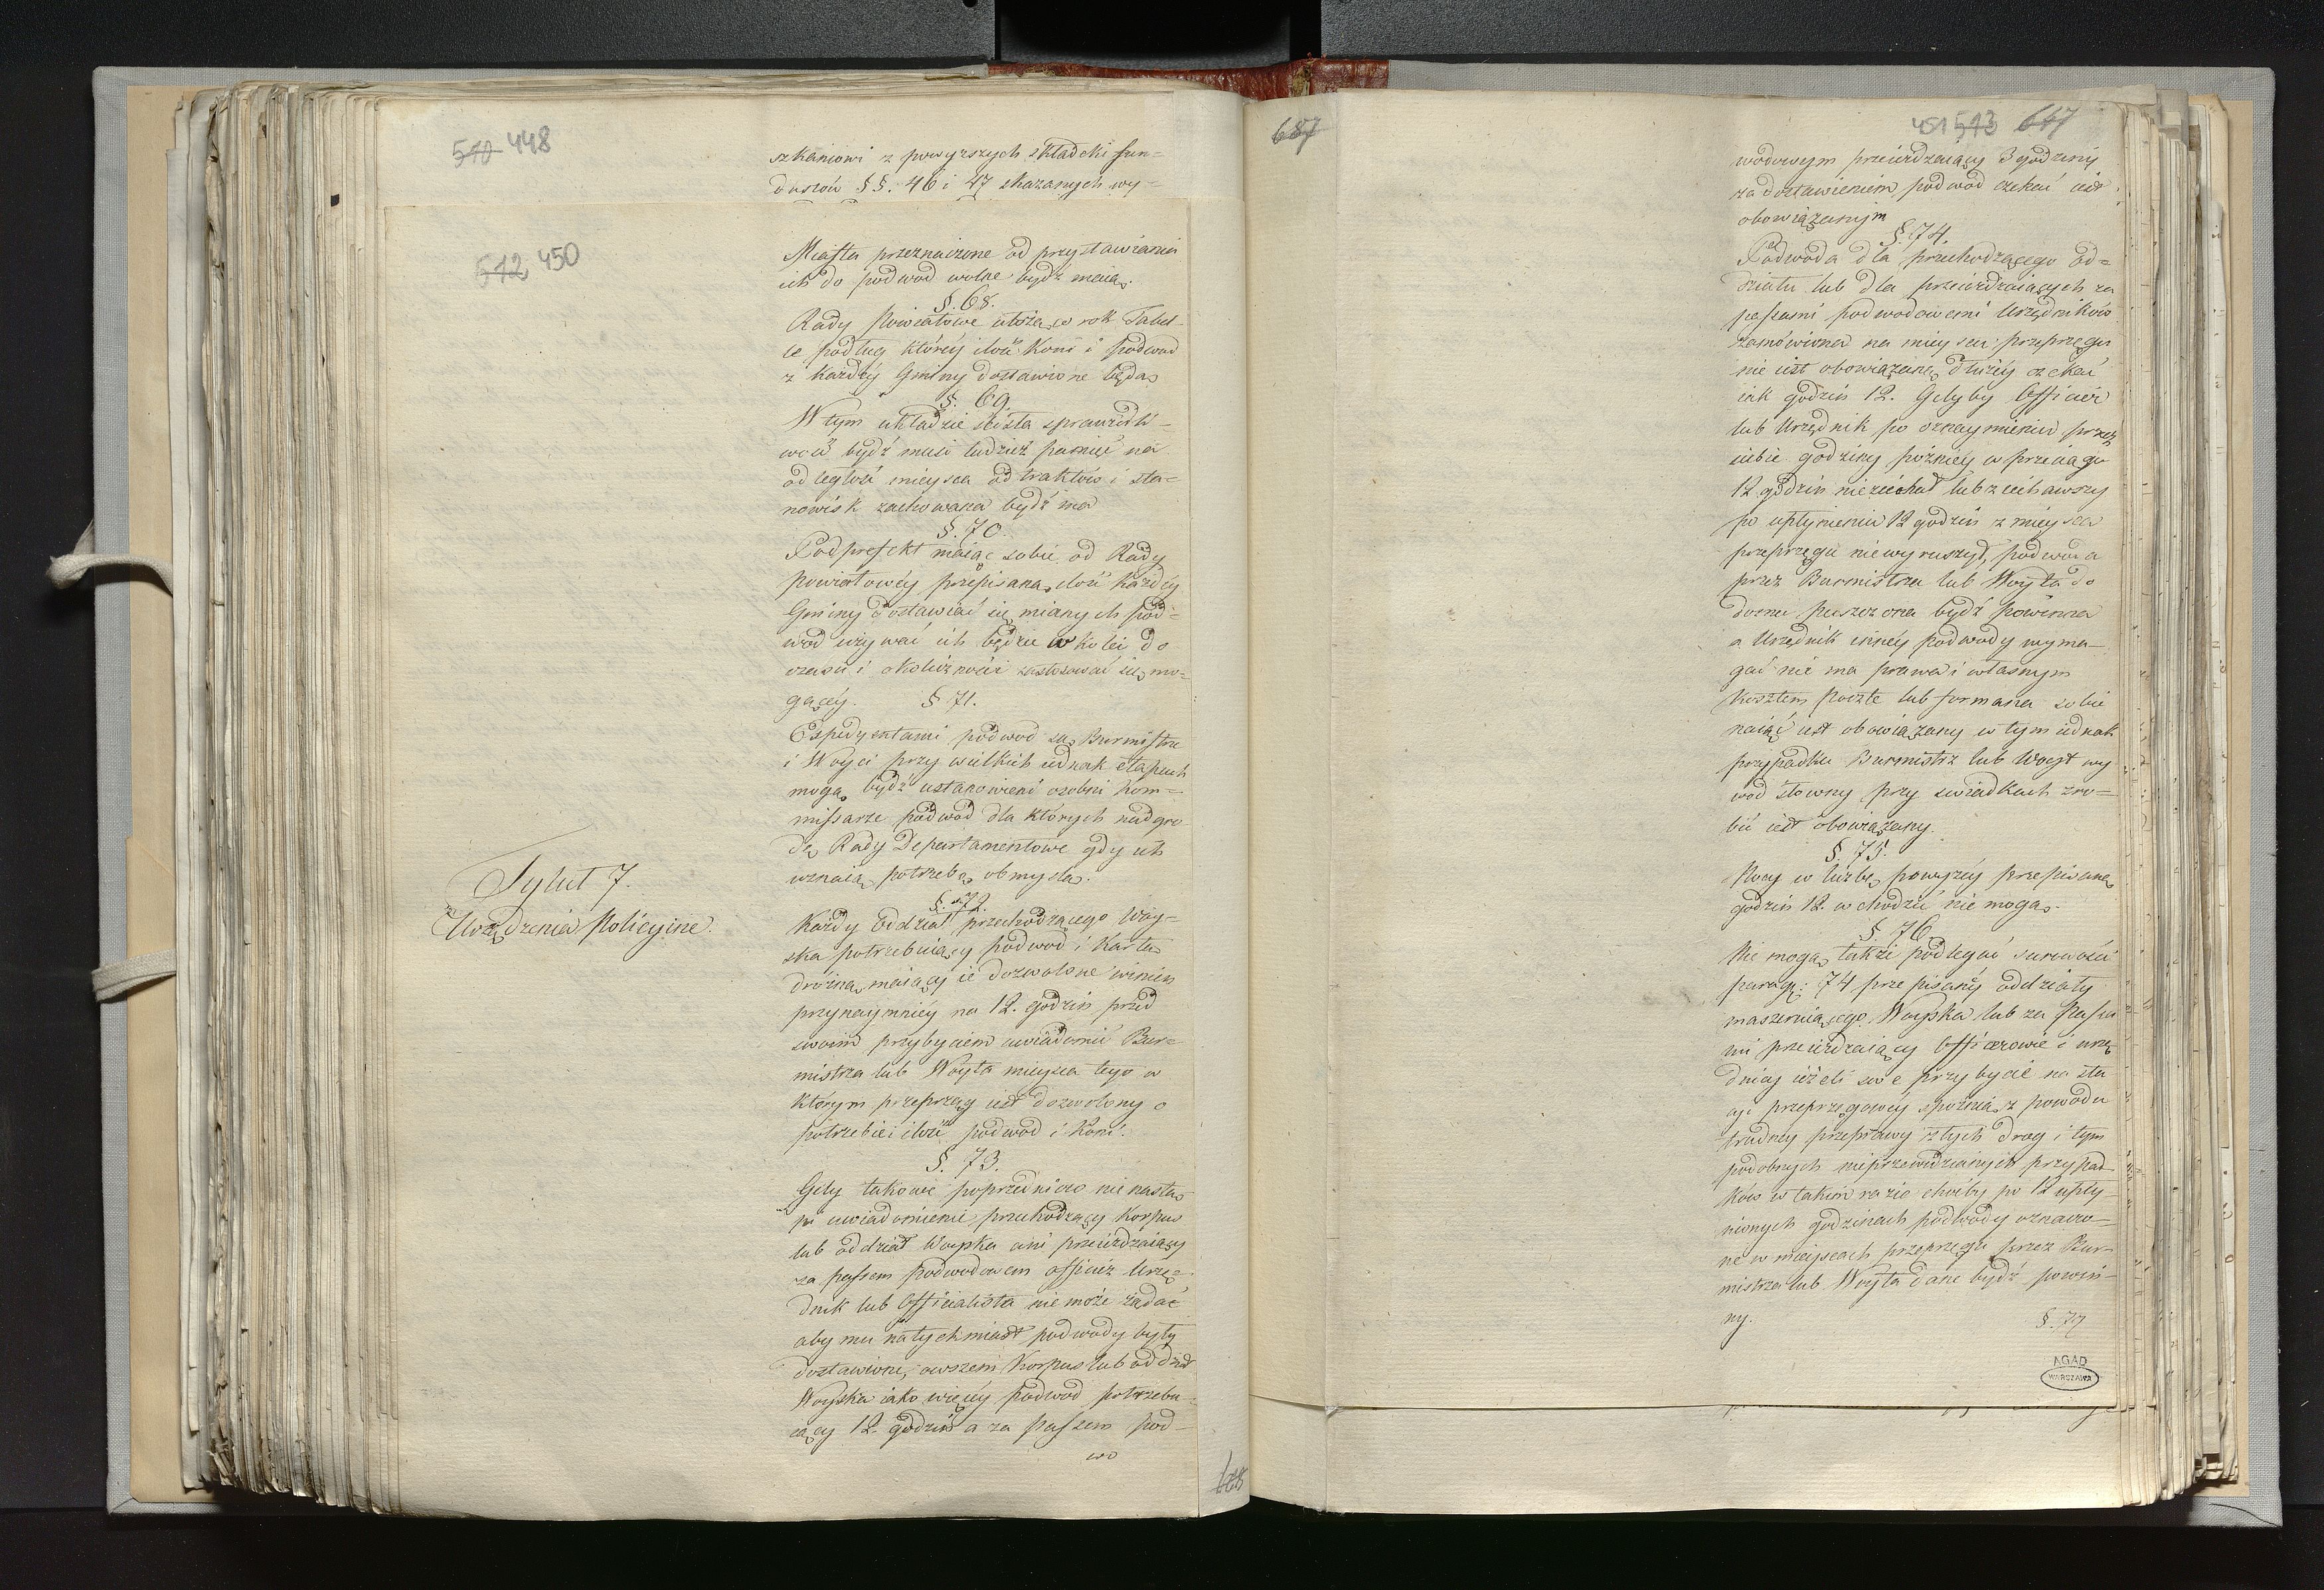 510 448
szkaniowi z powyzszych składki fun=
duszów §§. 46 i 47 skazanych wy=
512 450
Miasta przeznaczone od przystawiania
ich do podwod wolne bydź maią.
§. 68.
Rady Powiatowe ułożą w rok Tabel-
le podług któréy ilość Koni i podwod
z każdéy Gminy dostawione będą
§. 69.
W tym układzie ścisła sprawiedli-
wość bydź musi tudzież pamięć na
odległość mieysca od traktów i sta=
nowisk zachowana bydź ma
§. 70.
Podprefekt maiąc sobie od Rady
Powiatowéy przepisaną ilość każdéy
Gminy dostawiać się mianych pod=
wod używać ich będzie w kolei do
czasu i okoliczności zastosować się mo=
gącéy. § 71.
Expedyentami podwod są Burmistrze
i Woyci przy wielkich iednak etapach
mogą bydź ustanowieni osobni Kom=
missarze podwod dla których nadgro-
dę Rady Departamentowe gdy ich
uznaią potrzebę obmyslą.
Tytuł 7.
Urządzenia Policyine.
§. 72.
Każdy Oddział przechodzącego Woy=
ska potrzebuiący podwod i Kartą
drożną maiący ie dozwolone winien
przynaymniéy na 12. godzin przed
swoim przybyciem uwiadomić Bur=
mistrza lub Woyta mieysca tego w
którym przeprząg iest dozwolony o
potrzebie i ilości podwod i koni.
§. 73.
Gdy takowe poprzedniczo nie nastą-
pi uwiadomienie, przechodzący Korpus
lub oddział Woyska ani przeieżdzaiący
za passem podwodowem officier Urzę=
dnik lub Officialista nie może żądać
aby mu natychmiast podwody były
dostawione, owszem Korpus lub oddział
Woyska iako więcéy podwod potrzebu-
iący 12. godzin a za passem pod-
wo
687
688
451 513 647
wodowym przeieżdzaiący 3 godziny
za dostawieniem podwod czekać iest
obowiązanym
§. 74.
Podwoda dla przechodzącego od=
działu lub dla przeieżdzaiących za
passami podwodowemi Urzędników
zamówiona na mieyscu przeprzęgu
nie iest obowiązaną dłużéy czekać
iak godzin 12. Gdyby Officier
lub Urzędnik po oznaymieniu przez
siebie godziny późniéy w przeciągu
12 godzin nieziechał lub ziechawszy
po upłynieniu 12 godzin z mieysca
przeprzęgu niewyruszył, podwoda
przez Burmistrza lub Woyta do
domu puszczona bydź powinna
a Urzędnik innéy podwody wyma-
gać nie ma prawa i własnym
kosztem pocztę lub formana sobie
naiąć iest obowiązany w tym iednak
przypadku Burmistrz lub Woyt wy
wod słowny przy swiadkach zro=
bić iest obowiązany.
§. 75.
Nocy w liczbę powyżéy przepisaną
godzin 12. wchodzić nie mogą.
§. 76.
Nie mogą także podlegać surowości
paragr: 74 przepisanéy oddziały
maszeruiącego Woyska lub za Passa
mi przeieżdzaiący Officerowie i urzę
dnicy ieżeli swe przybycie na sta
cyi przeprzęgowéy spóźnią z powodu
trudnéy przeprawy złych drog i tym
podobnych nieprzewidzianych przypad-
ków w takim razie choćby po 12 upły-
nionych godzinach podwody oznaczo-
ne w mieyscach przeprzęgu przez Bur-
mistrza lub Woyta dane bydź powin-
ny.
§. 77
AGAD
WARSZAWA